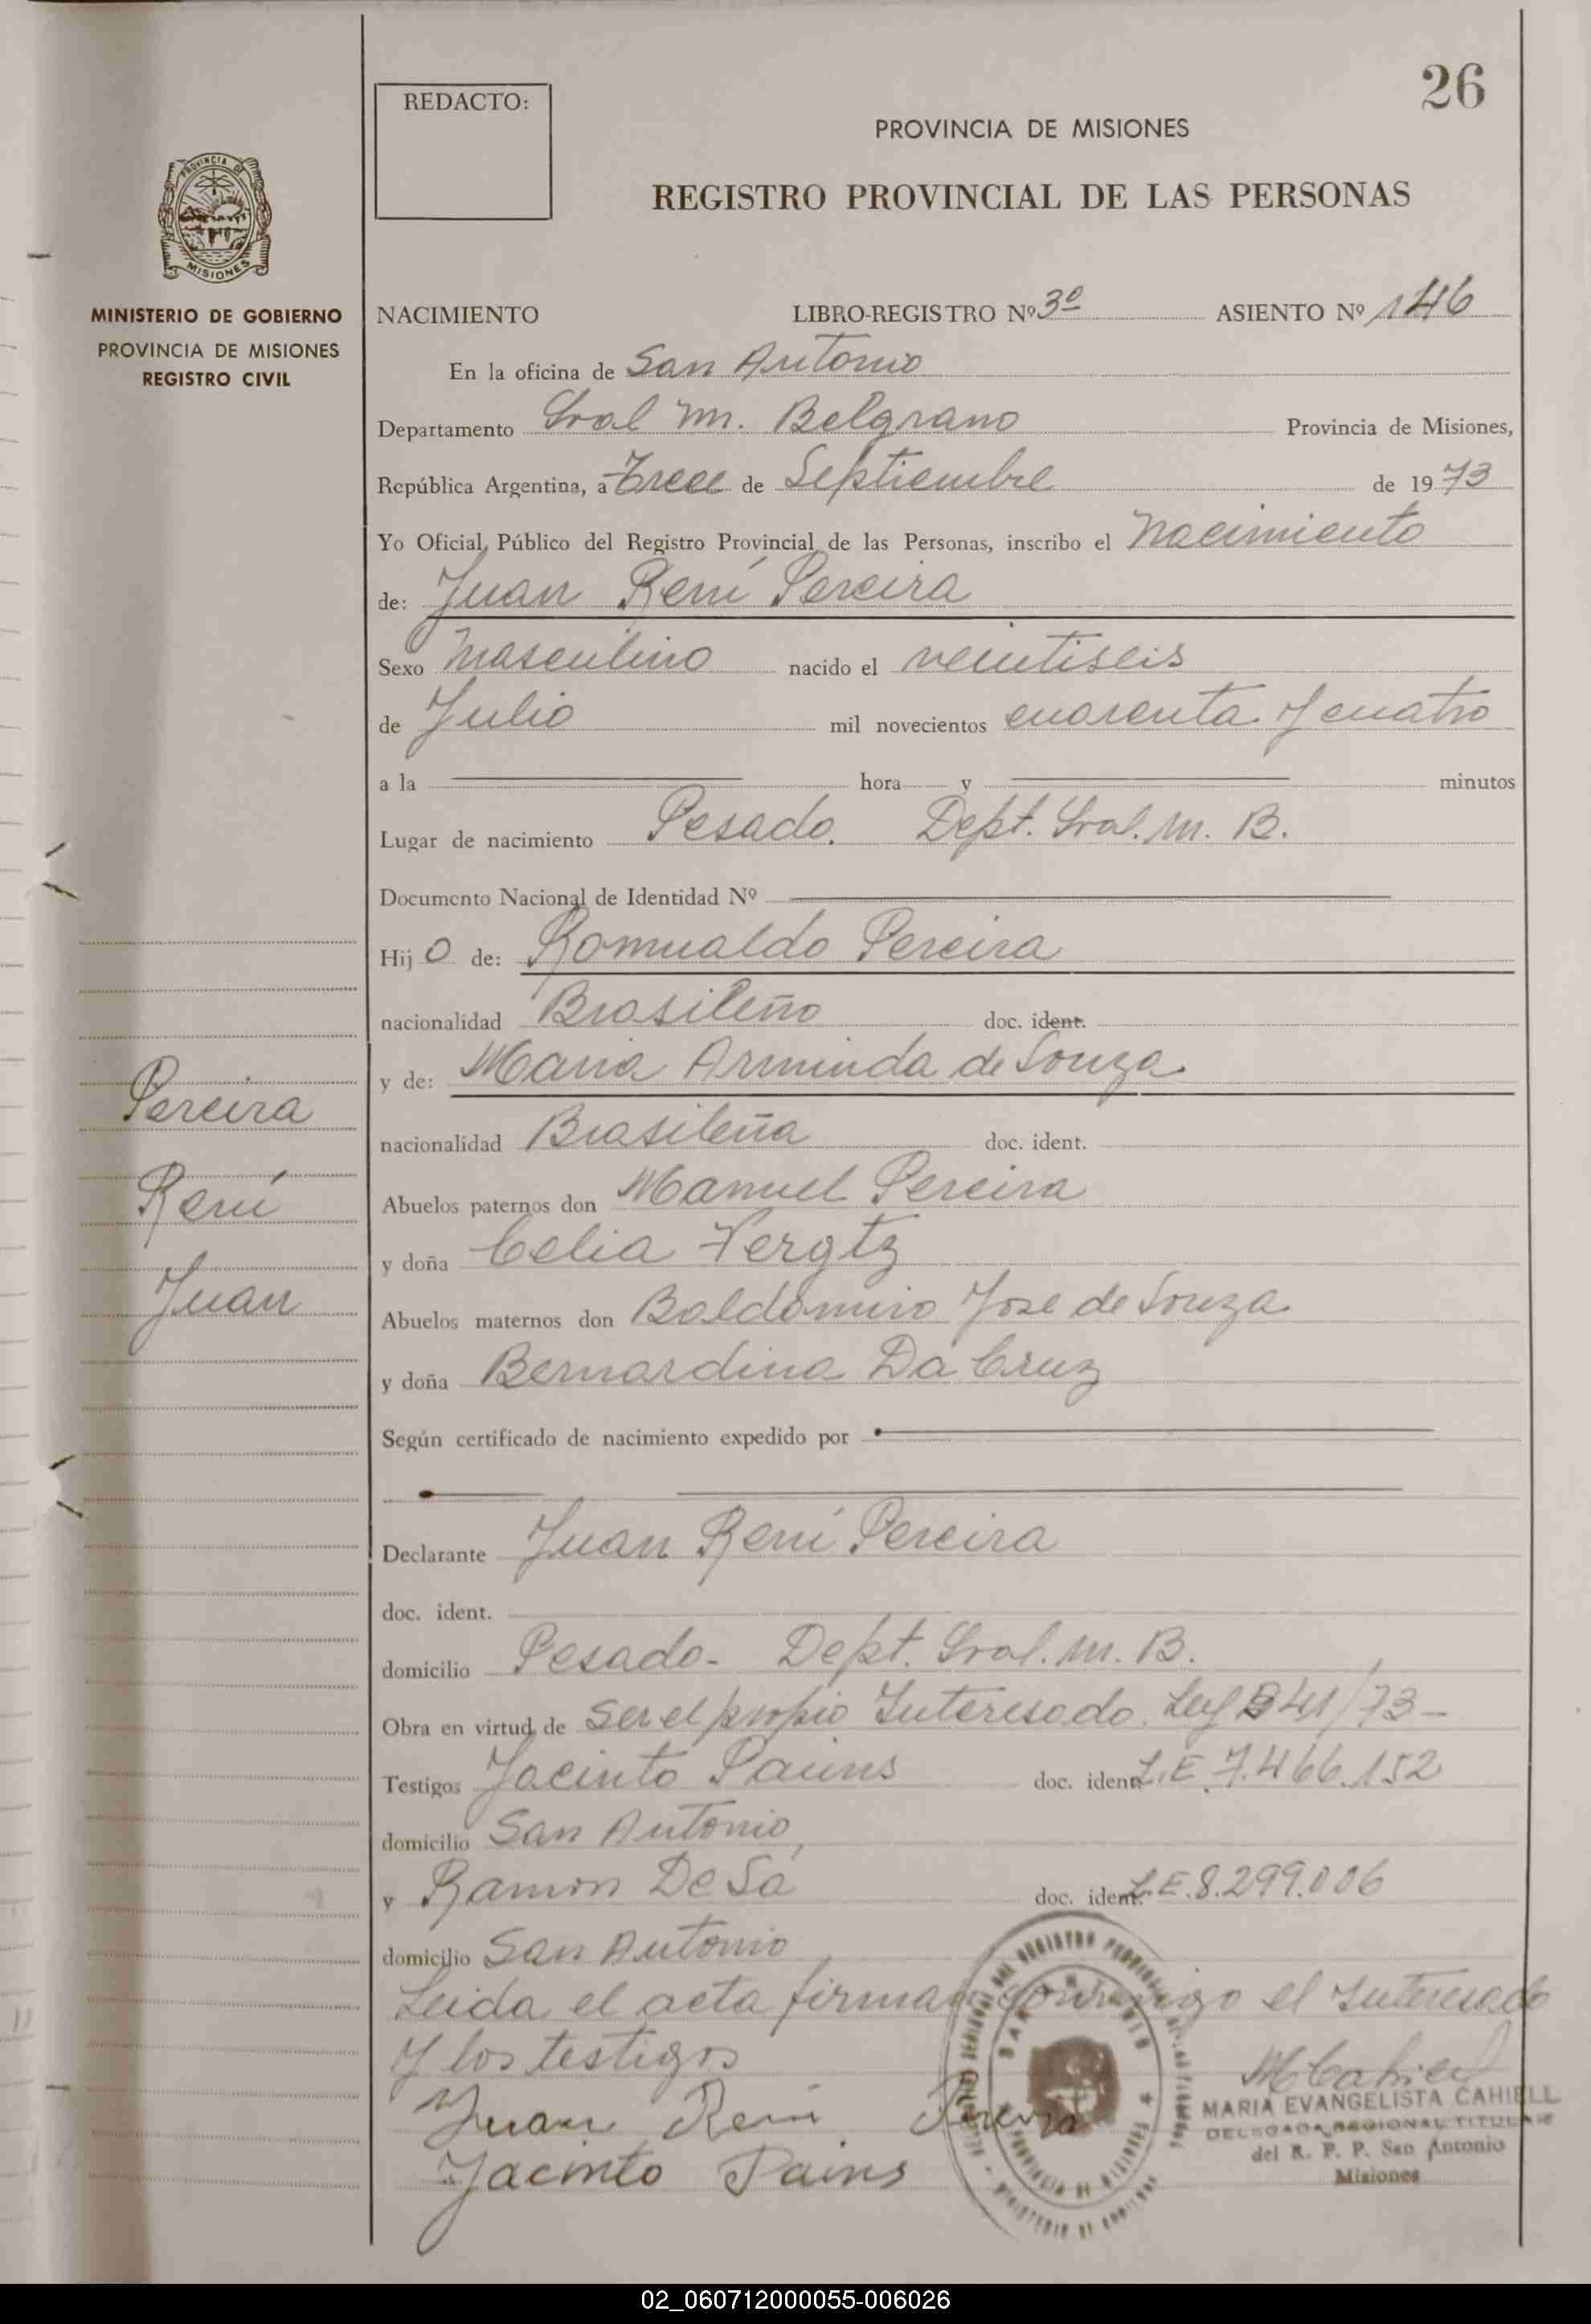 26
REDACTO:
PROVINCIA DE MISIONES
REGISTRO PROVINCIAL DE LAS PERSONAS
PROVINCIA DE
MISIONES
MINISTERIO DE GOBIERNO
PROVINCIA DE MISIONES
REGISTRO CIVIL
NACIMIENTO LIBRO-REGISTRO Nº 3º ASIENTO Nº 146
En la oficina de San Antonio
Departamento Gral M. Belgrano Provincia de Misiones,
República Argentina, a Trece de Septiembre de 1973
Yo Oficial Público del Registro Provincial de las Personas, inscribo el Nacimiento
de: Juan René Pereira
Sexo Masculino nacido el veintiseis
de Julio mil novecientos cuarenta y cuatro
a la hora y minutos
Lugar de nacimiento Pesado. Dept. Gral. M. B.
Documento Nacional de Identidad Nº
Hijo de: Romualdo Pereira
nacionalidad Brasileño doc. ident.
y de: Maria Arminda de Souza
nacionalidad Brasileña doc. ident.
Pereira
René
Juan
Abuelos paternos don Manuel Pereira
y doña Celia
Abuelos maternos don Baldomiro Jose de Souza
y doña Bernardina Da Cruz
Según certificado de nacimiento expedido por
Declarante Juan René Pereira
doc. ident.
domicilio Pesado - Dept. Gral. M. B.
Obra en virtud de Ser el propio Interesado. Ley 41/73 -
Testigos Jacinto Pains doc. ident. L.E. 7.466.152
domicilio San Antonio
y Ramon De Sá doc. ident. L.E. 8.299.006
domicilio San Antonio
Leida el acta firman conmigo el Interesado
y los testigos
Juan René Pereira
Jacinto Pains
MCahiell
MARIA EVANGELISTA CAHIELL
DELEGADA REGIONAL TITULAR
del R. P. P. San Antonio
Misiones
02_060712000055-006026